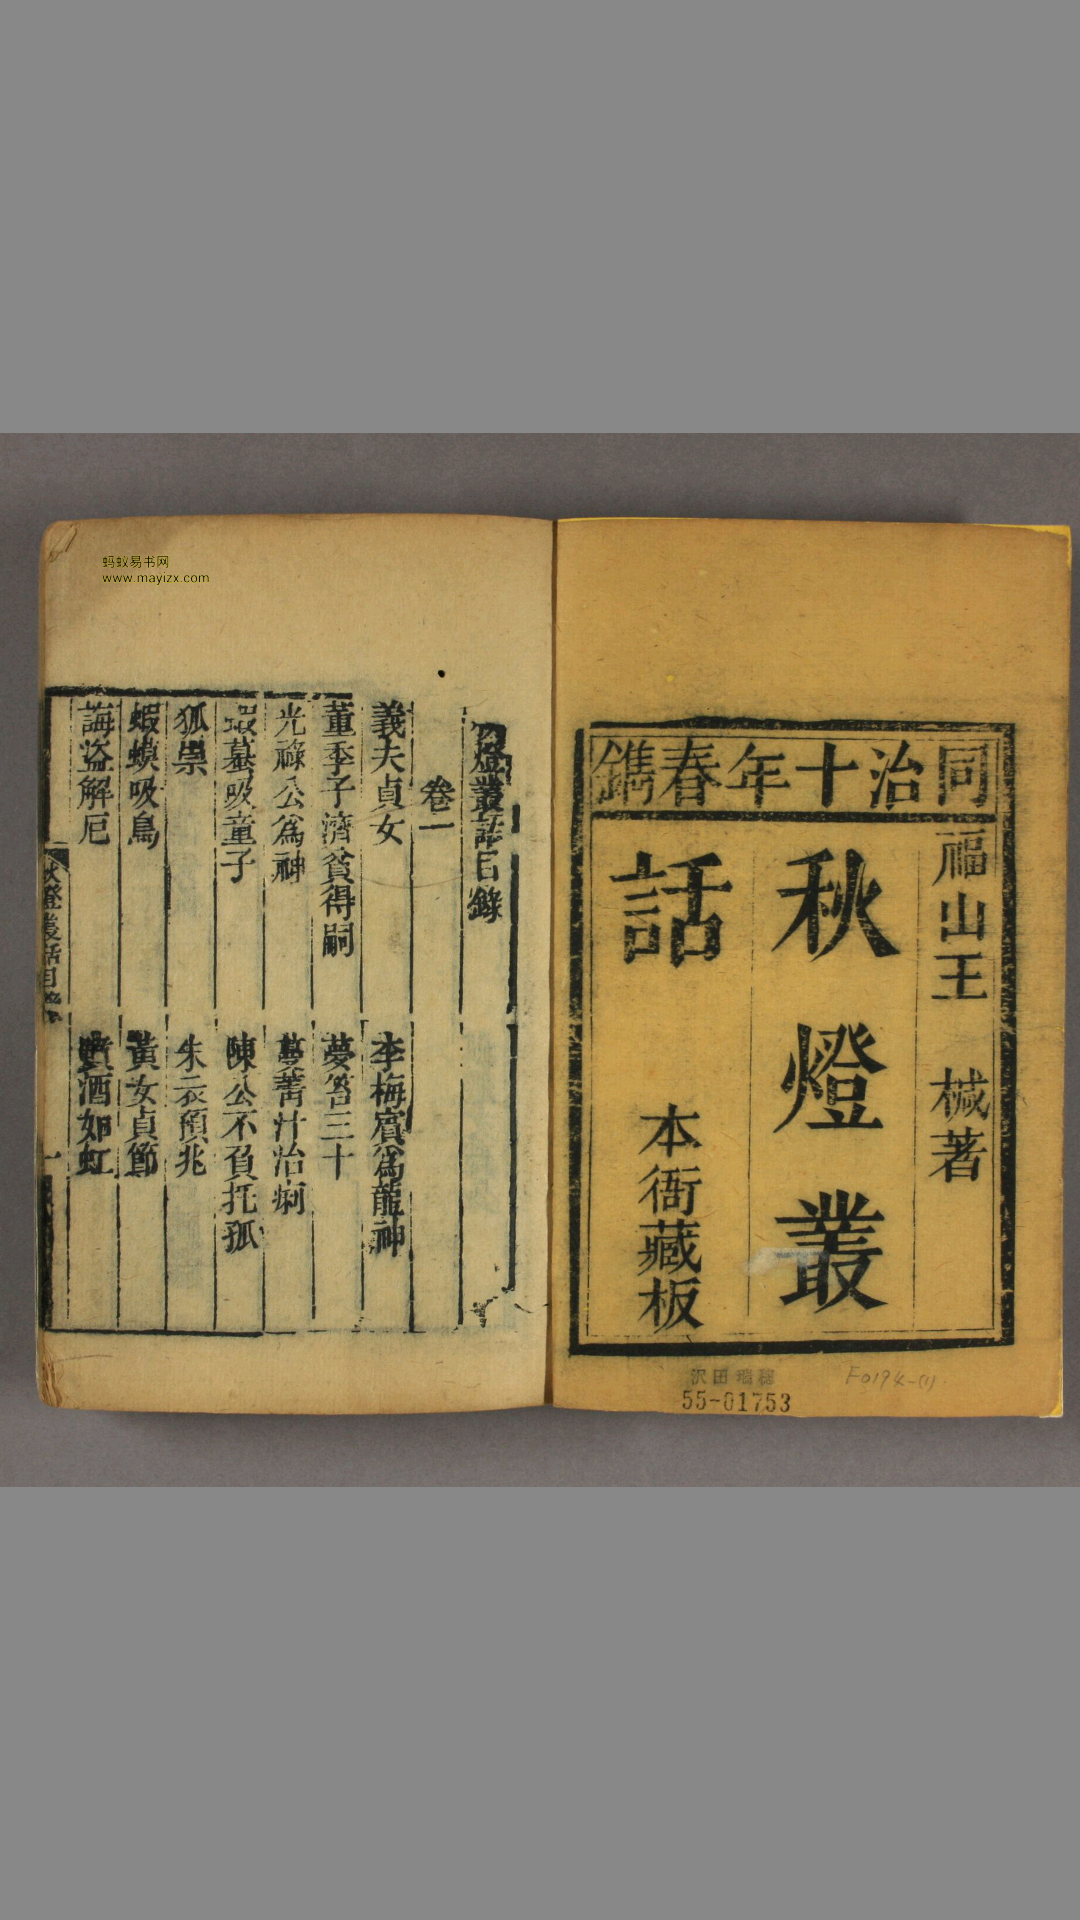 同治十年春鐫
福山王 椷著
秋燈叢
話
本衙藏板
沢田瑞穂
55-01753
F0194-(1)
蚂蚁易书网
www.mayizx.com
燈叢話目錄
卷一
義夫貞女 李梅賓為龍神
董季子濟貧得嗣 夢笞三十
光祿公為神 蔓菁汁治痢
蝦蟇吸童子 陳公不負托孤
狐祟 朱衣預兆
蝦蟆吸鳥 黃女貞節
誨盜解厄 噴酒如虹
秋燈叢話目錄
一